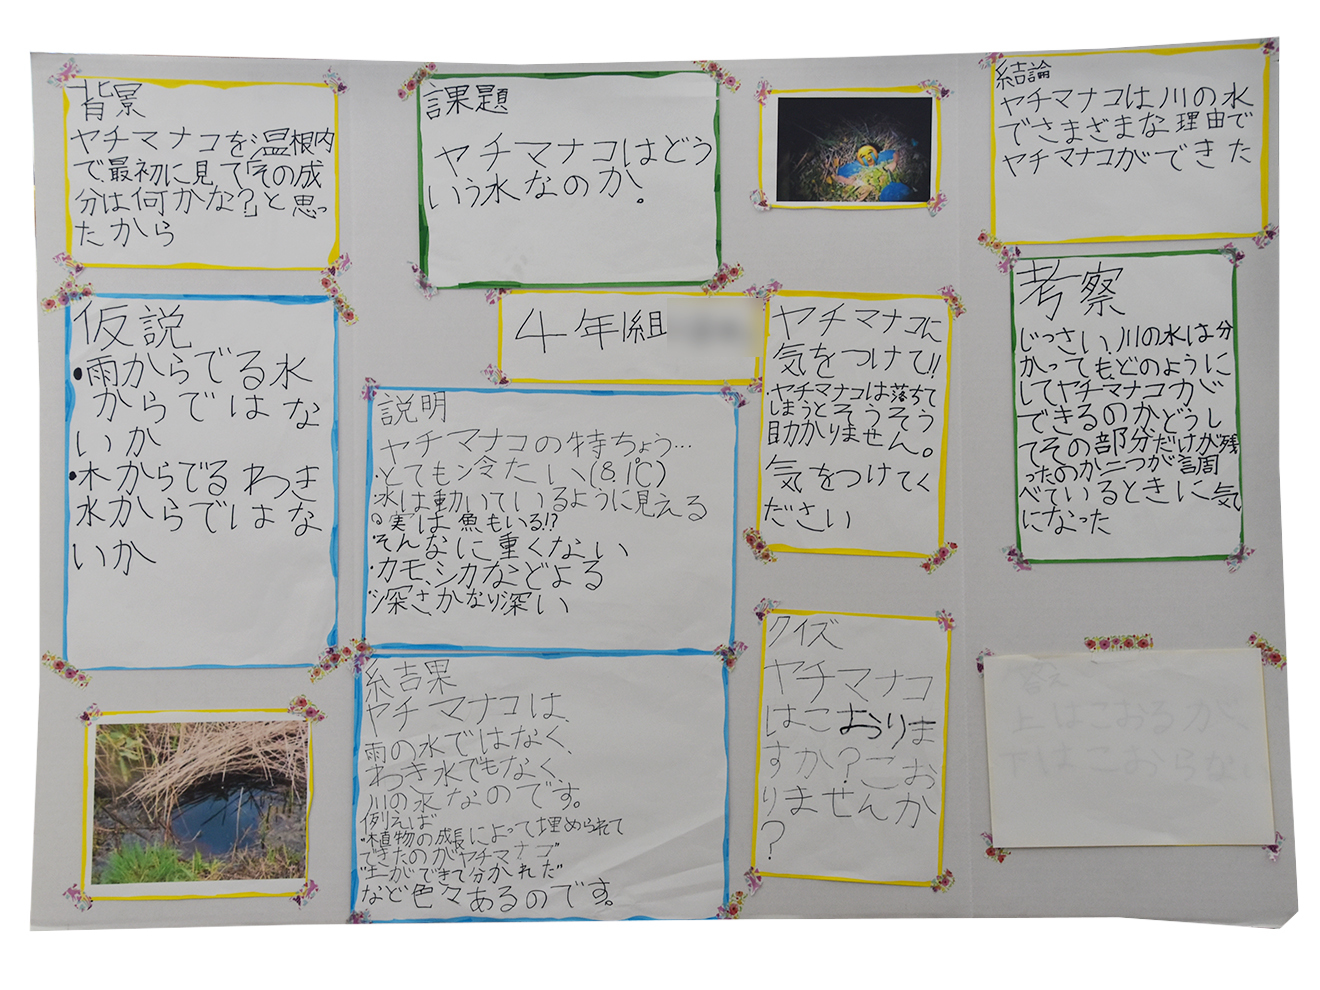 背景
ヤチマナコを温根内
で最初に見て「その成
分は何かな?」と思っ
たから
仮説
・雨からでる水
からではな
いか
・木からでるわき
水からではな
いか
課題
ヤチマナコはどう
いう水なのか。
4年1組
説明
ヤチマナコの特ちょう…
・とても冷たい(8.1℃)
・水は動いているように見える
・実は魚もいる!?
・そんなに重くない
・カモ、シカなどよる
・深さかなり深い
結果
ヤチマナコは、
雨の水ではなく、
わき水でもなく、
川の水なのです。
例えば
"植物の成長によって埋められて
できたのがヤチマナコ"
"土ができて分かれた"
など色々あるのです。
ヤチマナコに
気をつけて!!
・ヤチマナコは落ちて
しまうとそうそう
助かりません。
気をつけてく
ださい
クイズ
ヤチマナコ
はこおりま
すか?こお
りませんか
?
結論
ヤチマナコは川の水
でさまざまな理由で
ヤチマナコができた
考察
じっさい、川の水は分
かってもどのように
してヤチマナコが
できるのかどうし
てその部分だけが残
ったのか二つが調
べているときに気
になった
上はこおるが、
下はこおらない